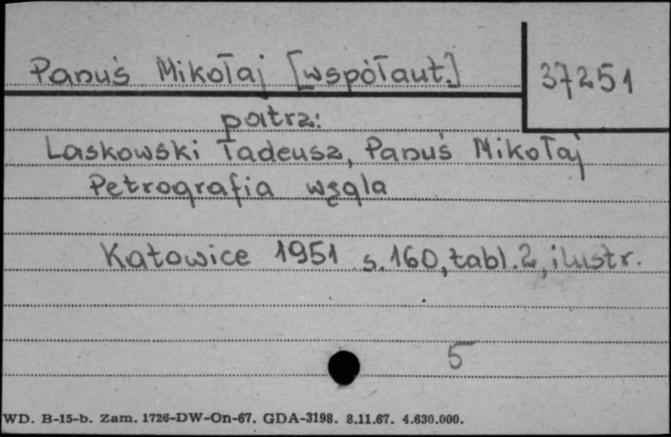 Panuś Mikołaj [współaut.]
37251
patrz:
Laskowski Tadeusz, Panuś Mikołaj
Petrografia węgla
Katowice 1951 s.160, tabl.2, ilustr.
5
WD. B-15-b. Zam. 1726-DW-On-67. GDA-3198. 8.11.67. 4.630.000.